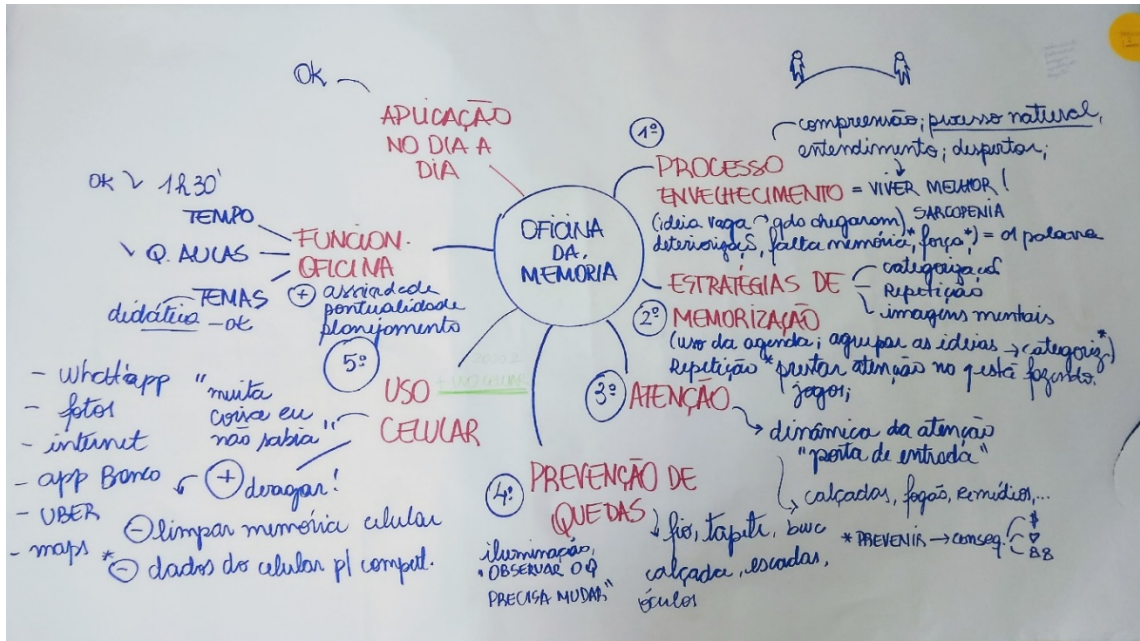 OFICINA
DA
MEMÓRIA
1º
PROCESSO
ENVELHECIMENTO = VIVER MELHOR!
compreensão; processo natural,
entendimento; despertar;
(ideia vaga → qdo chegaram) SARCOPENIA
falta memória, força*) = a palavra
2º
ESTRATÉGIAS DE
MEMORIZAÇÃO
categorizaçã
Repetição
imagens mentais
(uso da agenda; agrupar as ideias → categoriz*)
Repetição * prestar atenção no q está fazendo.
jogos;
3º ATENÇÃO
dinâmica da atenção
"porta de entrada"
calçadas, fogão, remédios,...
* PREVENIR → conseq.
$
4º
PREVENÇÃO DE
QUEDAS
fio, tapete, bwc
calçada, escadas,
óculos
iluminação,
"OBSERVAR O Q
PRECISA MUDAR"
5º
USO
CELULAR
"muita
coisa eu
não sabia"
- whatsapp
- fotos
- internet
- app Banco
- UBER
- maps
+ devagar!
- limpar memória celular
* - dados do celular p/ comput.
FUNCION.
OFICINA
OK 1h30'
TEMPO
Q. AULAS
TEMAS
didática - ok
+ assiduidade
pontualidade
planejamento
APLICAÇÃO
NO DIA A
DIA
OK